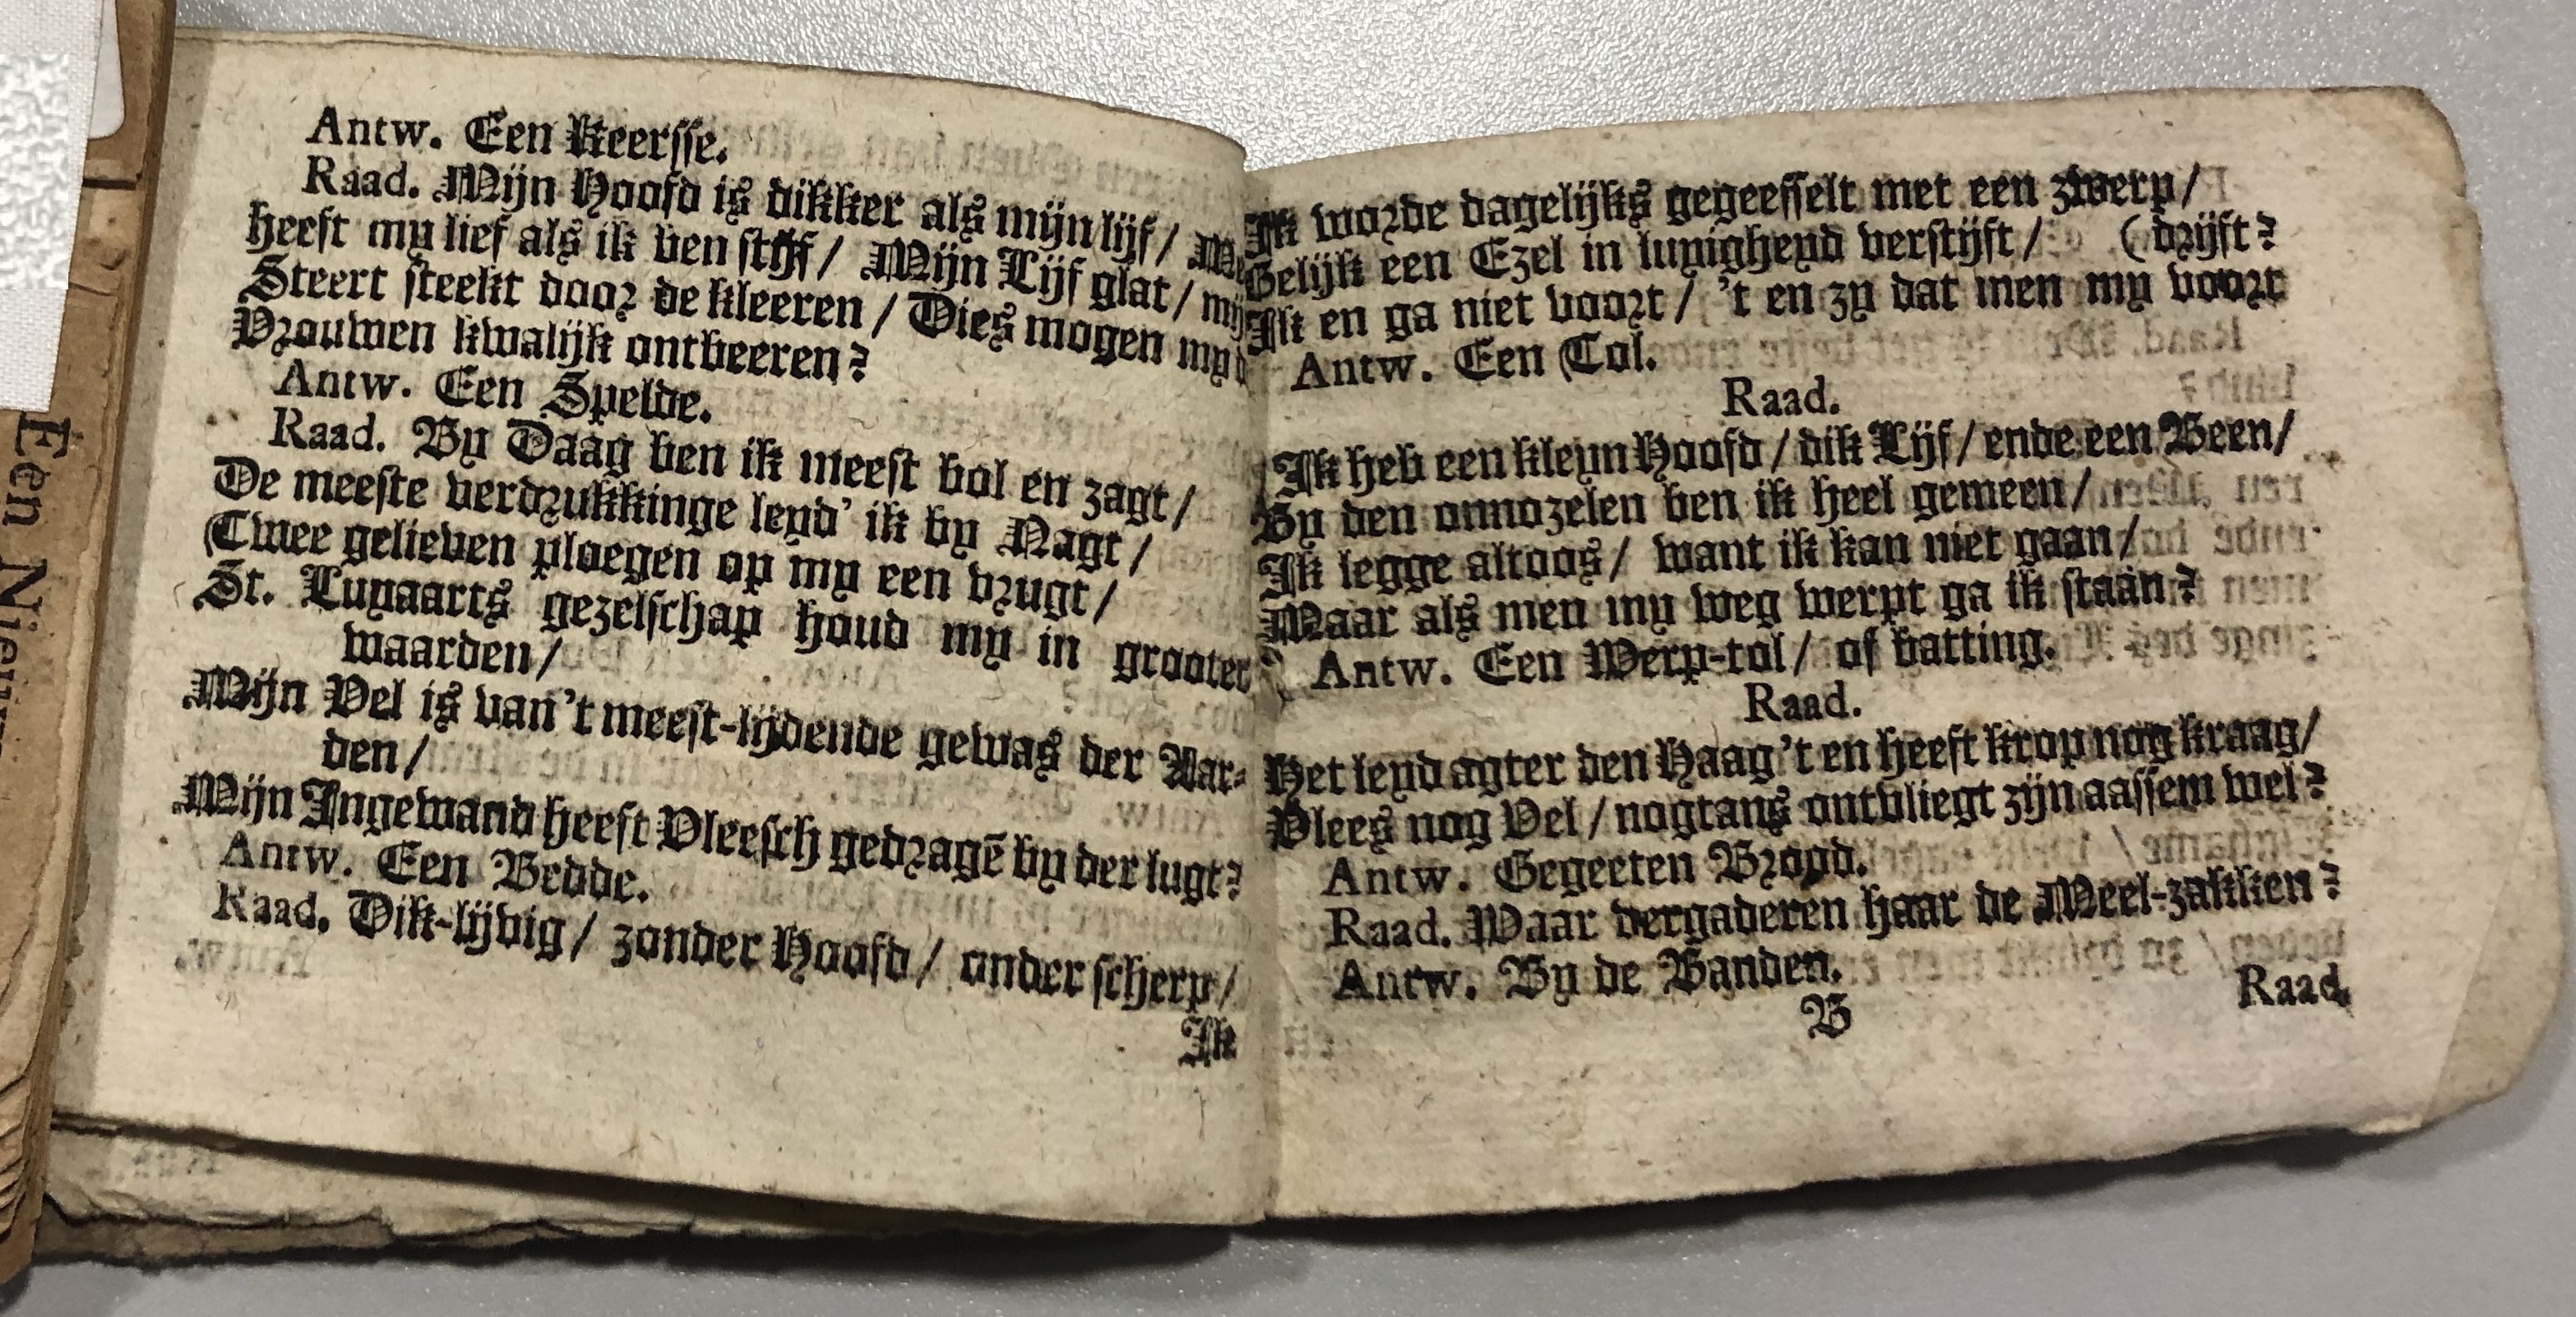 Antw. Een Keersse.
Raad. Mijn Hoofd is dikker als mijn lijf /
heeft my lief als ik ben stijf / Mijn Lijf glat /
Steert steekt door de kleeren / Dies mogen my
Vrouwen kwalijk ontbeeren?
Antw. Een Spelde.
Raad. By Daag ben ik meest bol en zagt /
De meeste verdrukkinge leyd' ik by Nagt /
Twee gelieven ploegen op my een vrugt /
St. Luyaarts gezelschap houd my in grooter
waarden /
Mijn Vel is van 't meest-lijdende gewas der Aar-
den /
Mijn Ingewand heeft Vleesch gedragē by der lugt?
Antw. Een Bedde.
Raad. Dik-lijvig / zonder Hoofd / onder scherp /
Ik
Ik worde dagelijks gegeesselt met een zwerp /
Gelijk een Ezel in luyigheyd verstijft / ( drijft?
Ik en ga niet voort / 't en zy dat men my voort
Antw. Een Tol.
Raad.
Ik heb een kleyn Hoofd / dik Lijf / ende een Been /
By den onnozelen ben ik heel gemeen /
Ik legge altoos / want ik kan niet gaan /
Maar als men my weg werpt ga ik staan?
Antw. Een Werp-tol / of batting.
Raad.
Het leyd agter den Haag 't en heeft krop nog kraag /
Vlees nog Vel / nogtans ontvliegt zijn aassem wel?
Antw. Gegeeten Brood.
Raad. Waar vergaderen haar de Meel-zakken?
Antw. By de Banden.
B
Raad.
Een